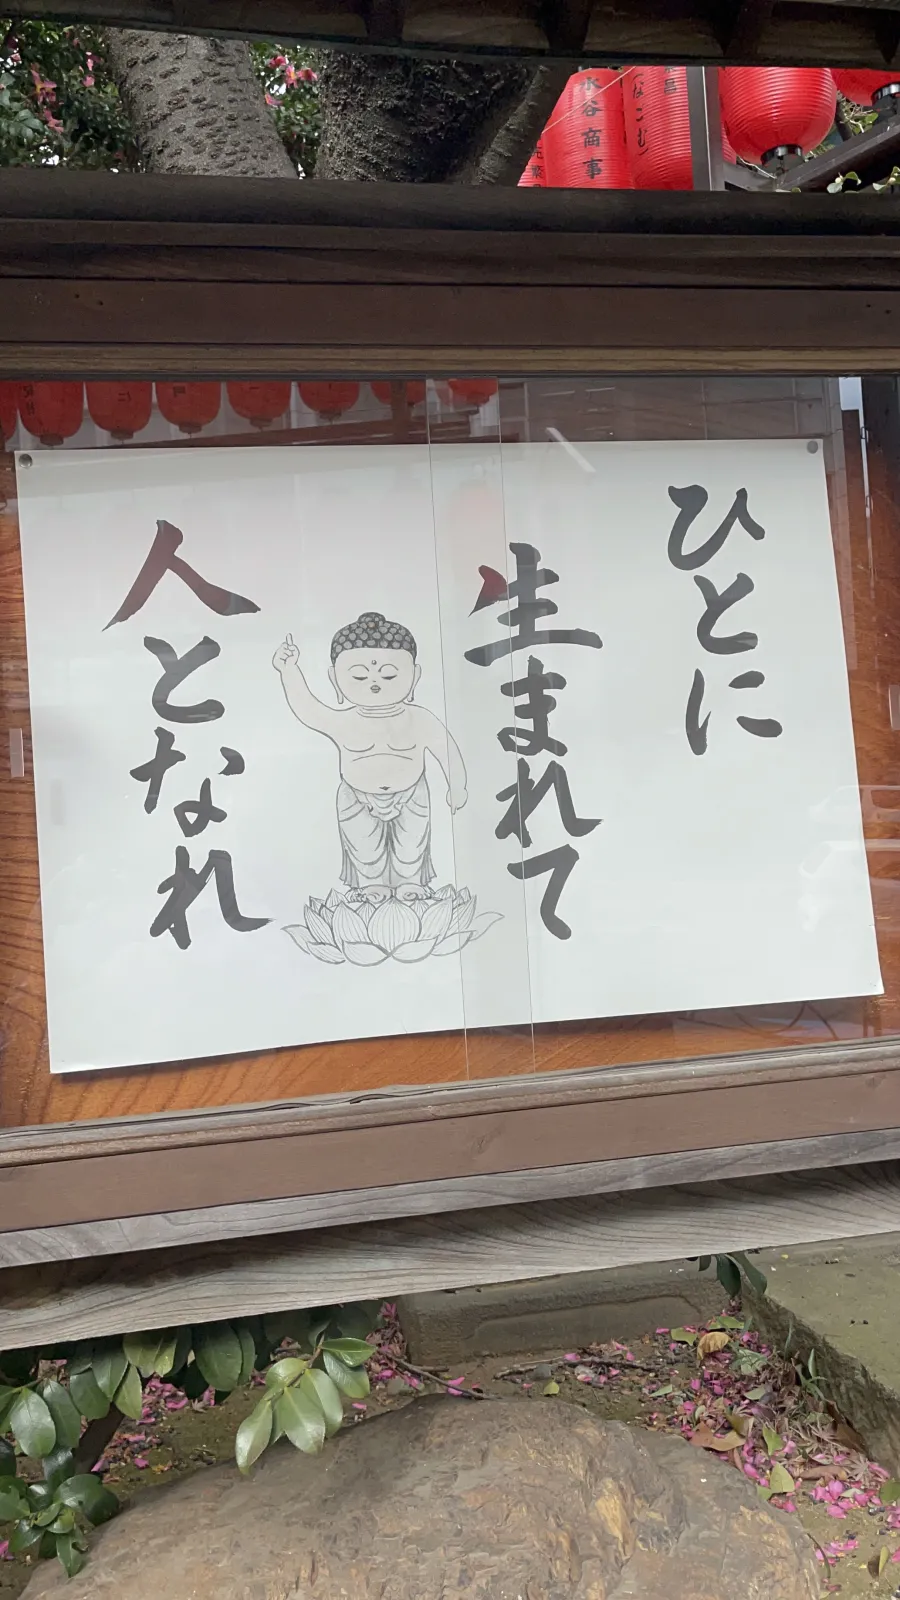 ひとに
生まれて
人となれ
水谷商事
なごむ